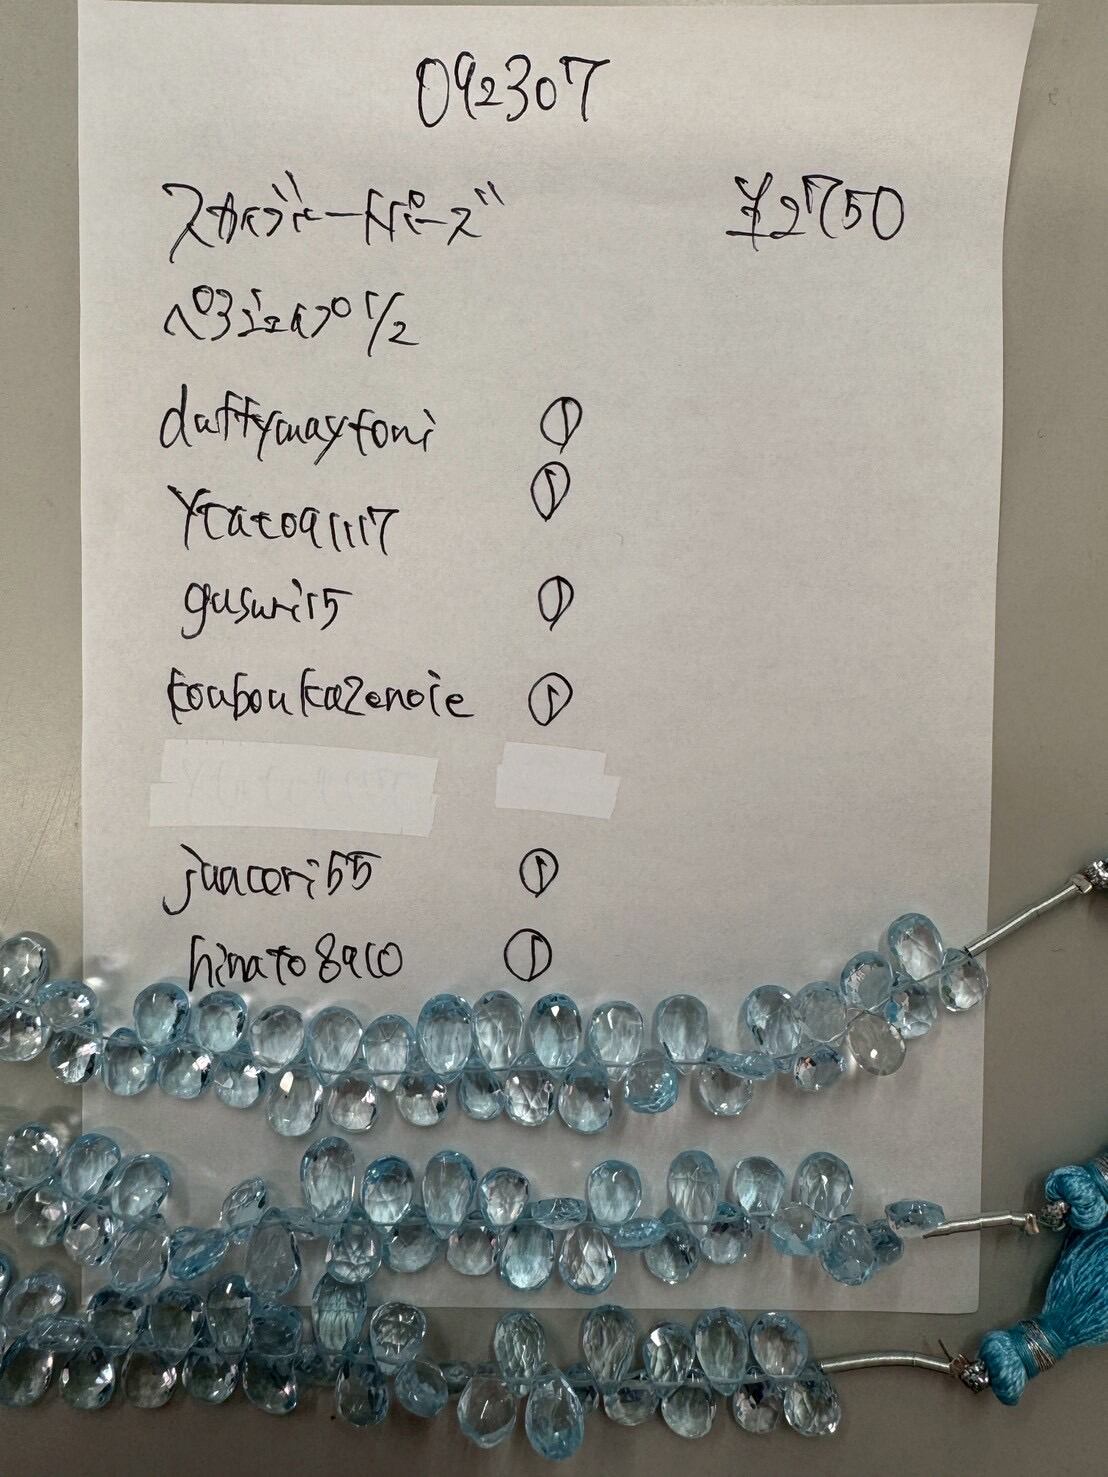 092307
スカイブルートパーズ ¥2750
ペアシェイプ 1/2
duffymayfoni ①
ytato91117 ①
gusuri15 ①
kouboukazenoie ①
juacori55 ①
hinato8910 ①